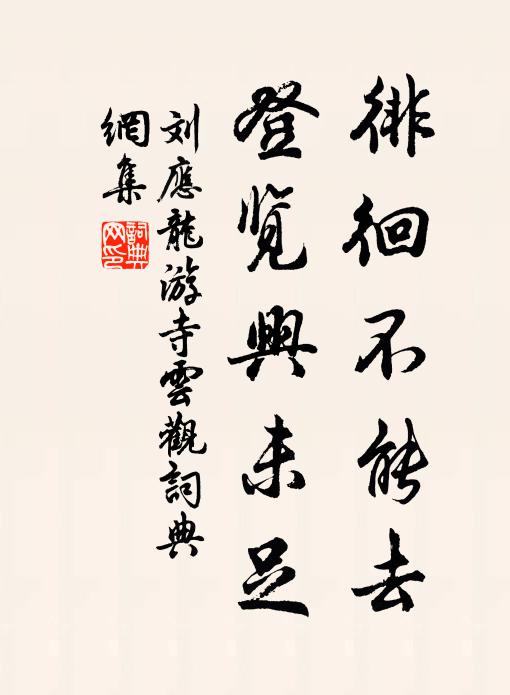 徘徊不能去
登览興未足
刘應龍游寺雲觀詞典
網集
詞典
网印